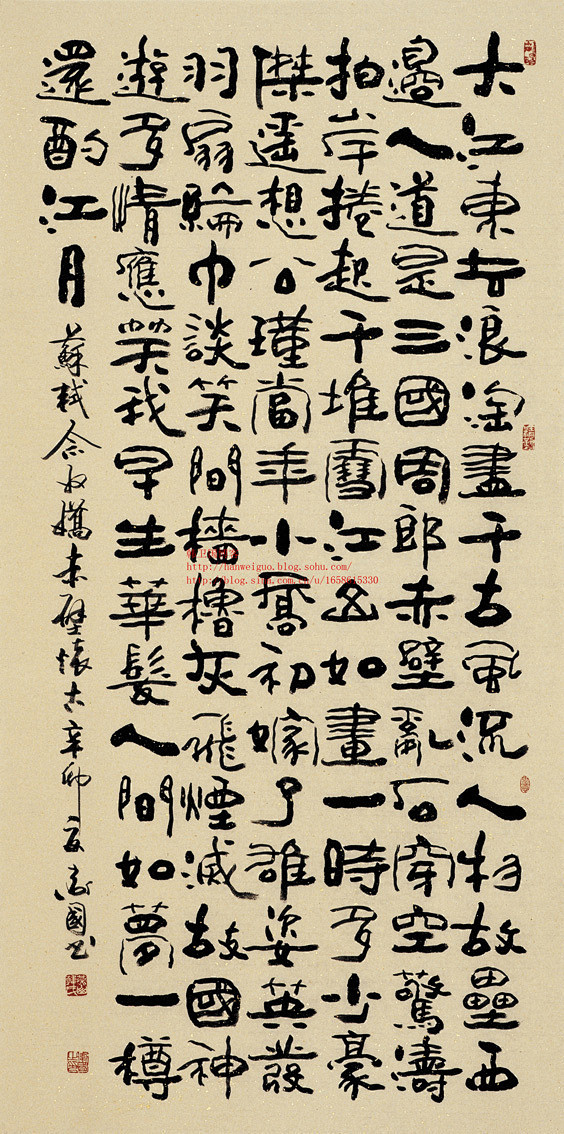 大江東去浪淘盡千古風流人物故壘西
邊人道是三國周郎赤壁亂石穿空驚濤
拍岸捲起千堆雪江山如畫一時多少豪
傑遙想公瑾當年小喬初嫁了雄姿英發
羽扇綸巾談笑間檣櫓灰飛煙滅故國神
遊多情應笑我早生華髮人間如夢一樽
還酌江月
蘇軾念奴嬌赤壁懷古辛卯夏衛國書
http://hanweiguo.blog.sohu.com/
http://blog.sina.com.cn/u/1658615330